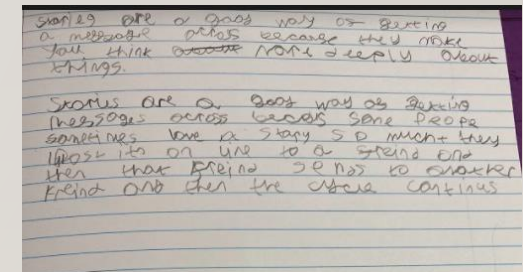 stories are a good way of getting
a message across because they make
you think more deeply about
things.
Stories are a good way of getting
messages across becaes some Peope
sometimes love a story so much they
Post it on line to a freind and
then that freind sends to another
freind and then the cycle continus